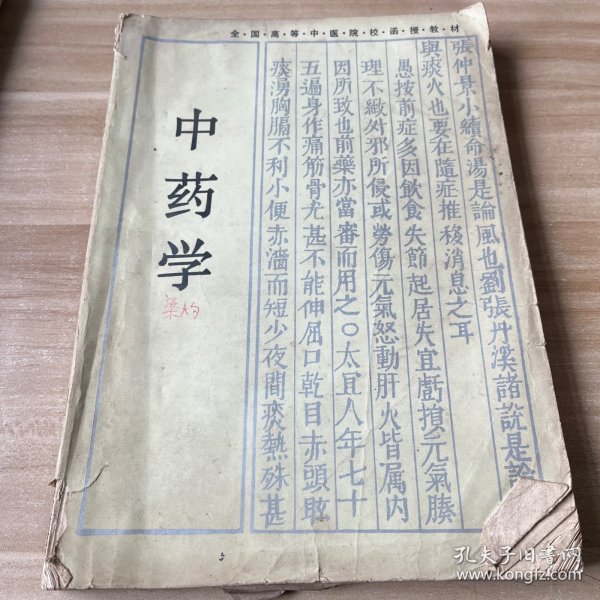 全·国·高·等·中·医·院·校·函·授·教·材
中药学
梁灼
張仲景小續命湯是論風也劉張丹溪諸說是論
與痰火也要在隨症推移消息之耳
愚按前症多因飲食失節起居失宜虧損元氣腠
理不緻外邪所侵或勞傷元氣怒動肝火皆屬内
因所致也前藥亦當審而用之〇太宜人年七十
五遍身作痛筋骨尤甚不能伸屈口乾目赤頭眩
痰湧胸膈不利小便赤濇而短少夜間痰熱殊甚
孔夫子旧书网
www.kongfz.com